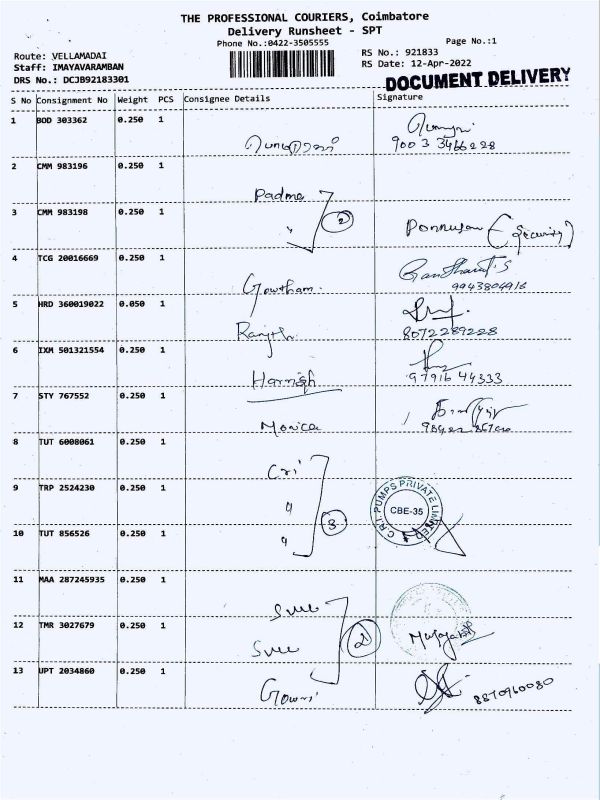 THE PROFESSIONAL COURIERS, Coimbatore
Delivery Runsheet - SPT
Phone No.:0422-3505555
Page No.:1
Route: VELLAMADAI
RS No.: 921833
Staff: IMAYAVARAMBAN
RS Date: 12-Apr-2022
DRS No.: DCJB92183301
DOCUMENT DELIVERY
S No Consignment No Weight PCS Consignee Details Signature
1 BOD 303362 0.250 1
900 3 3466228
2 CMM 983196 0.250 1
Padma
3 CMM 983198 0.250 1
" 2
Ponnusam (Security)
4 TCG 20016669 0.250 1
Gowtham. 9943804916
5 HRD 360019022 0.050 1
Ranjith 8072289228
6 IXM 501321554 0.250 1
Harrish 97916 44333
7 STY 767552 0.250 1
Monica
8 TUT 6008061 0.250 1
Cri
9 TRP 2524230 0.250 1
" 3
C.R.I. PUMPS PRIVATE LIMITED
CBE-35
10 TUT 856526 0.250 1
"
11 MAA 287245935 0.250 1
Sree
12 TMR 3027679 0.250 1
Sree 2
13 UPT 2034860 0.250 1
Gowri 8870960080